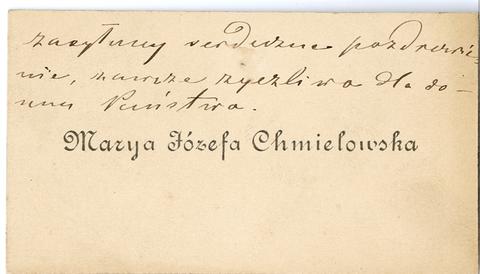 zasyłamy serdeczne pozdrowie-
nie, zawsze życzliwa dla do-
mu Państwa.
Marya Józefa Chmielowska